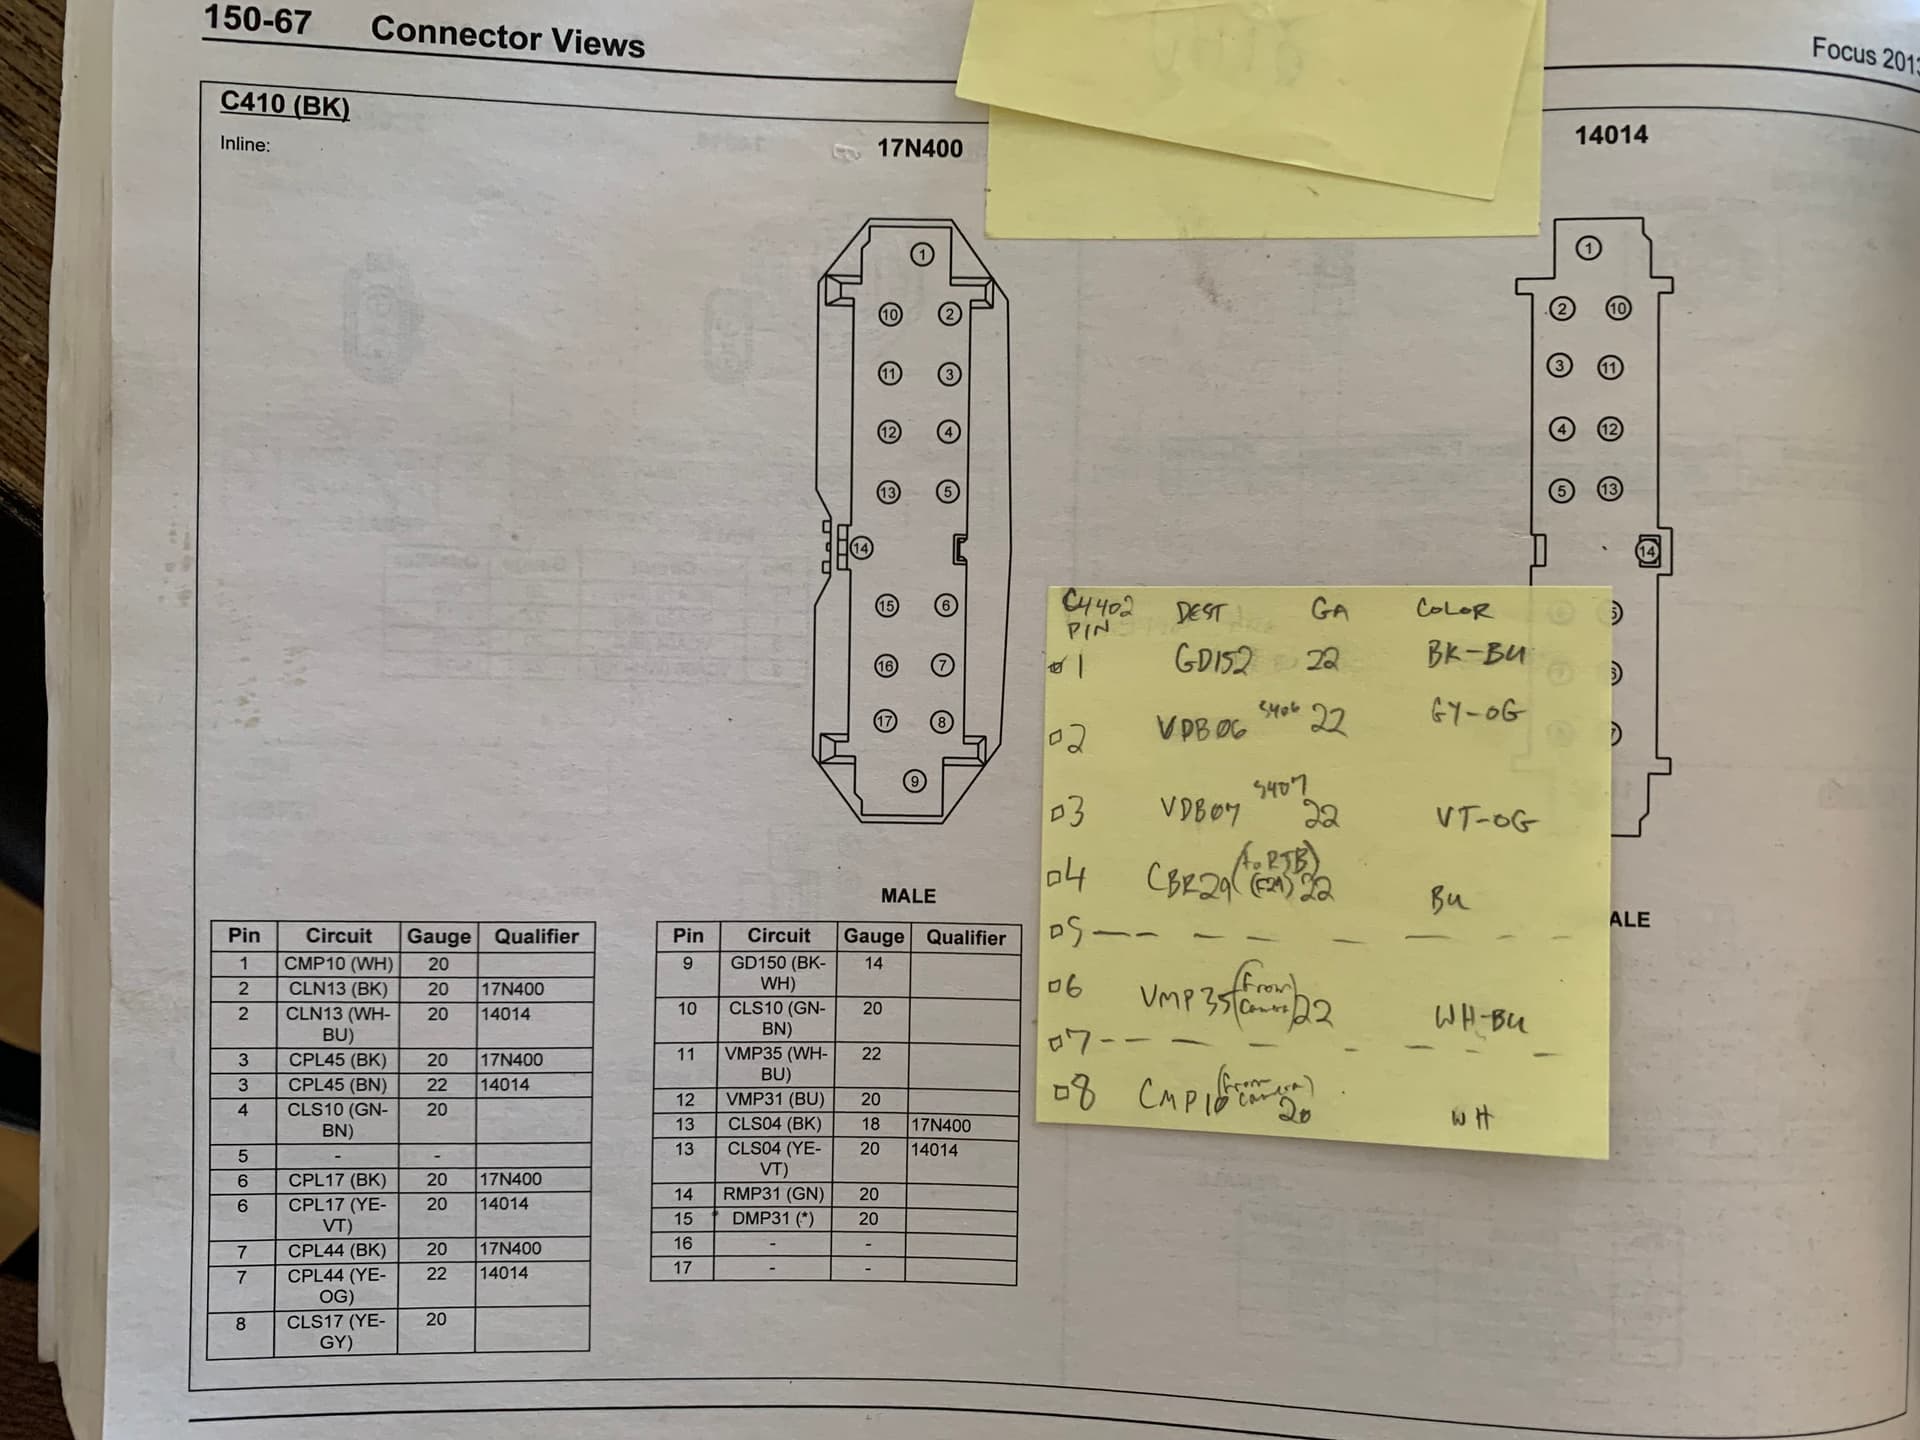 150-67 Connector Views
Focus 201
C410 (BK)
Inline:
17N400
14014
1
10 2
11 3
12 4
13 5
14
15 6
16 7
17 8
9
1
2 10
3 11
4 12
5 13
14
MALE
ALE
Pin Circuit Gauge Qualifier
1 CMP10 (WH) 20
2 CLN13 (BK) 20 17N400
2 CLN13 (WH-
BU) 20 14014
3 CPL45 (BK) 20 17N400
3 CPL45 (BN) 22 14014
4 CLS10 (GN-
BN) 20
5 - -
6 CPL17 (BK) 20 17N400
6 CPL17 (YE-
VT) 20 14014
7 CPL44 (BK) 20 17N400
7 CPL44 (YE-
OG) 22 14014
8 CLS17 (YE-
GY) 20
Pin Circuit Gauge Qualifier
9 GD150 (BK-
WH) 14
10 CLS10 (GN-
BN) 20
11 VMP35 (WH-
BU) 22
12 VMP31 (BU) 20
13 CLS04 (BK) 18 17N400
13 CLS04 (YE-
VT) 20 14014
14 RMP31 (GN) 20
15 DMP31 (*) 20
16 - -
17 - -
C4402 DEST GA COLOR
PIN
1 GD152 22 BK-BU
2 VDB06 S406 22 GY-OG
3 VDB07 S407 22 VT-OG
4 CBR29 (to RJB) (F29) 22 BU
5 - - - - - - - -
6 VMP35 (From Camera) 22 WH-BU
7 - - - - - - - -
8 CMP10 (From Camera) 20 WH